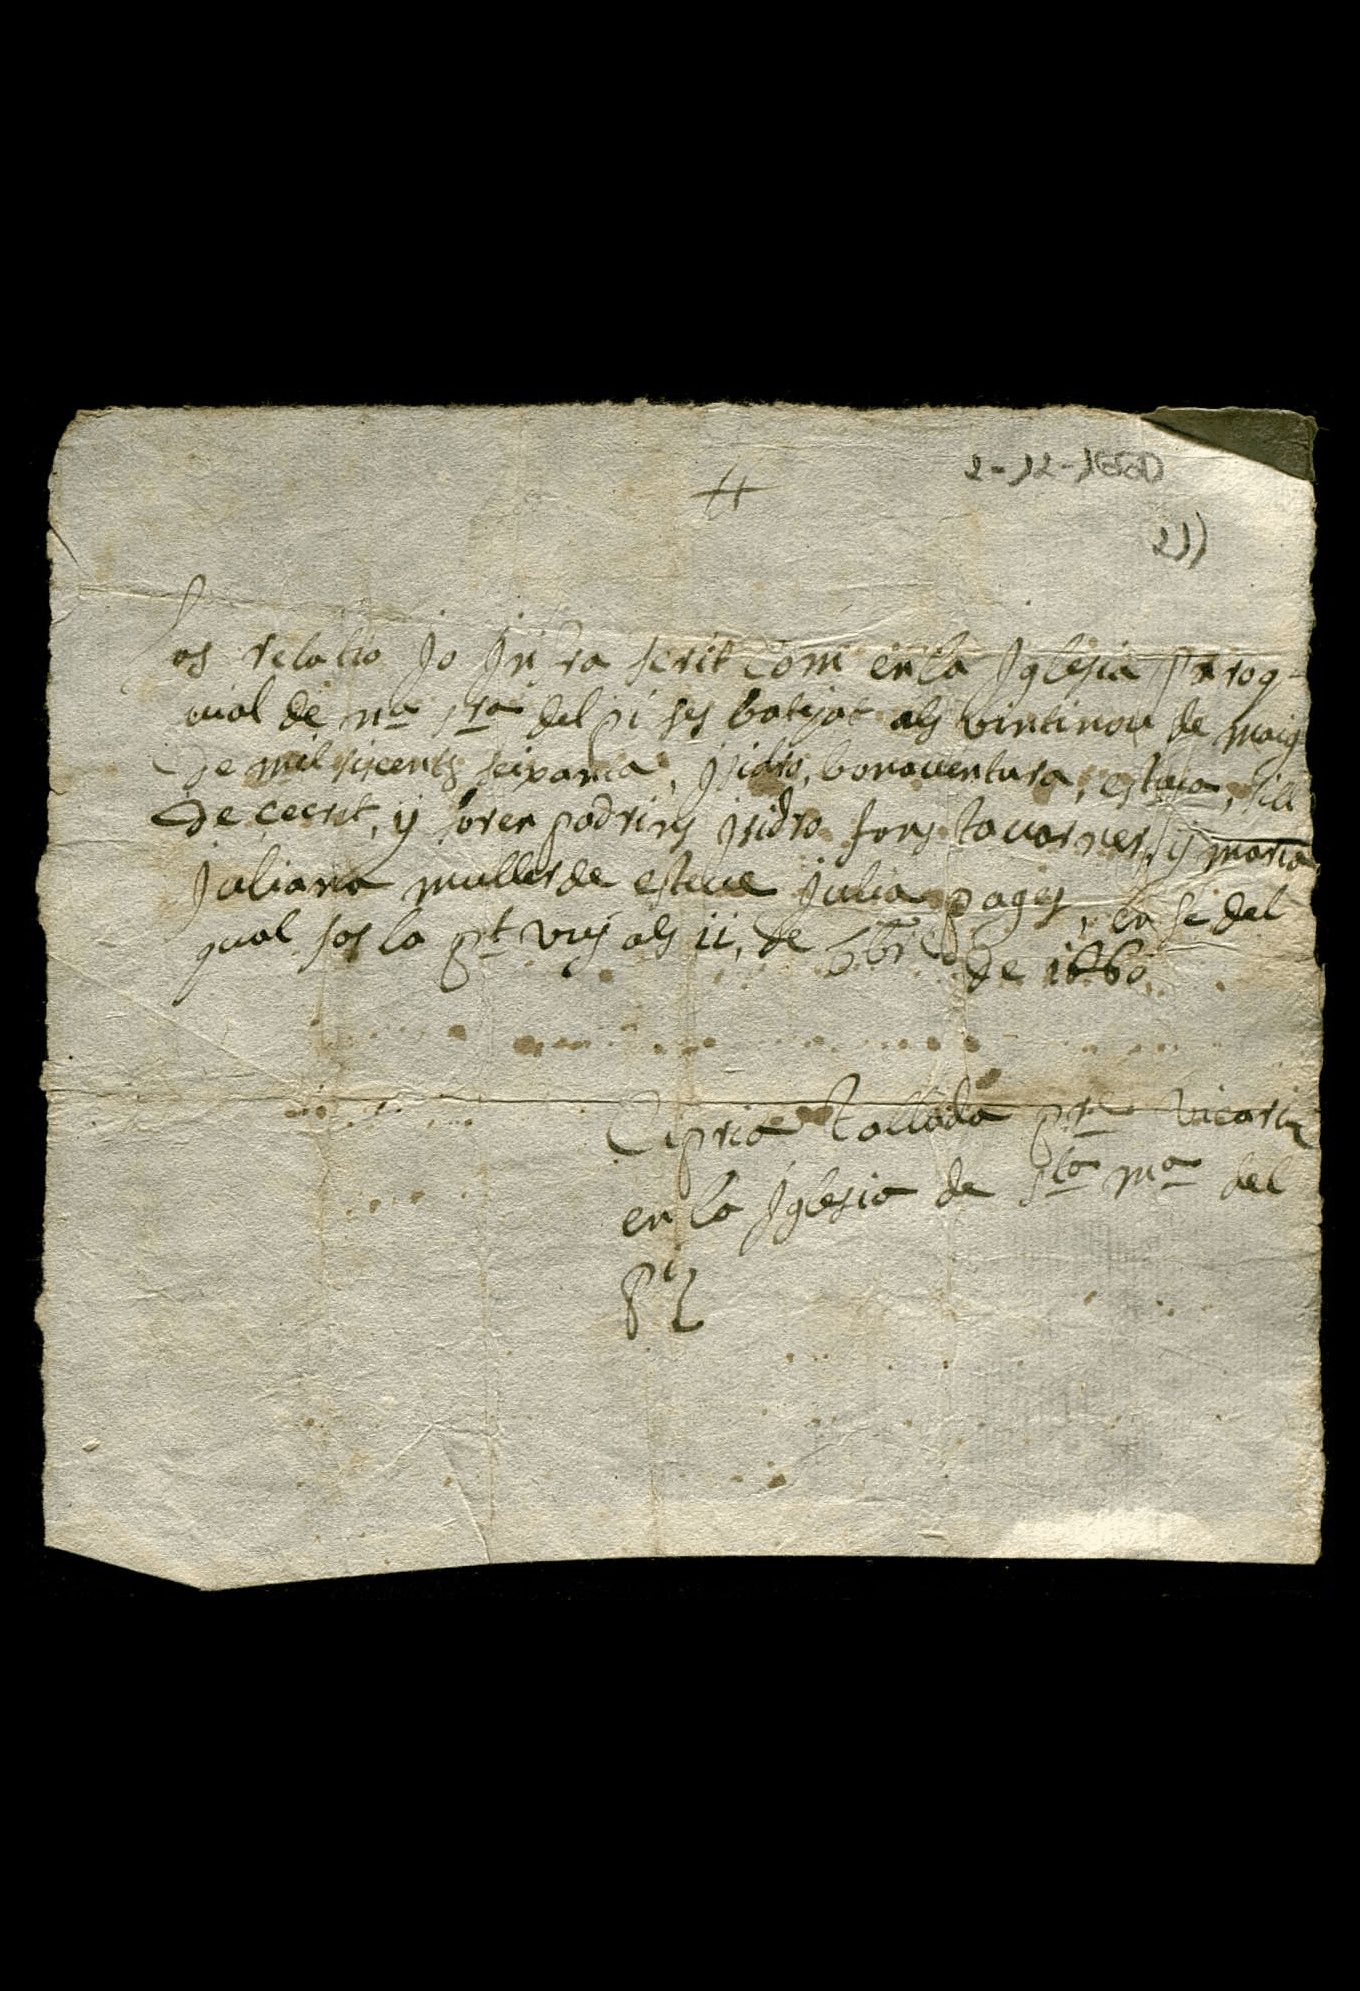 2-12-1660
21)
fas relatio jo Jnfra scrit Com en la Jglesia parroq-
uial de n.a s.ra del pi ses batejat als vintinou de maig
de mil siscents seixanta, Jsidro, bonauentura, esteua, fill
de secret, y foren padrins Jsidro fons tauarner, y maria
Juliana muller de esteue Julia pages, en fe del
qual fas la pt vuy als ii, de bre de 1660
Cipria Tallada pre Vicari
en la Jglesia de sta ma del
Pi